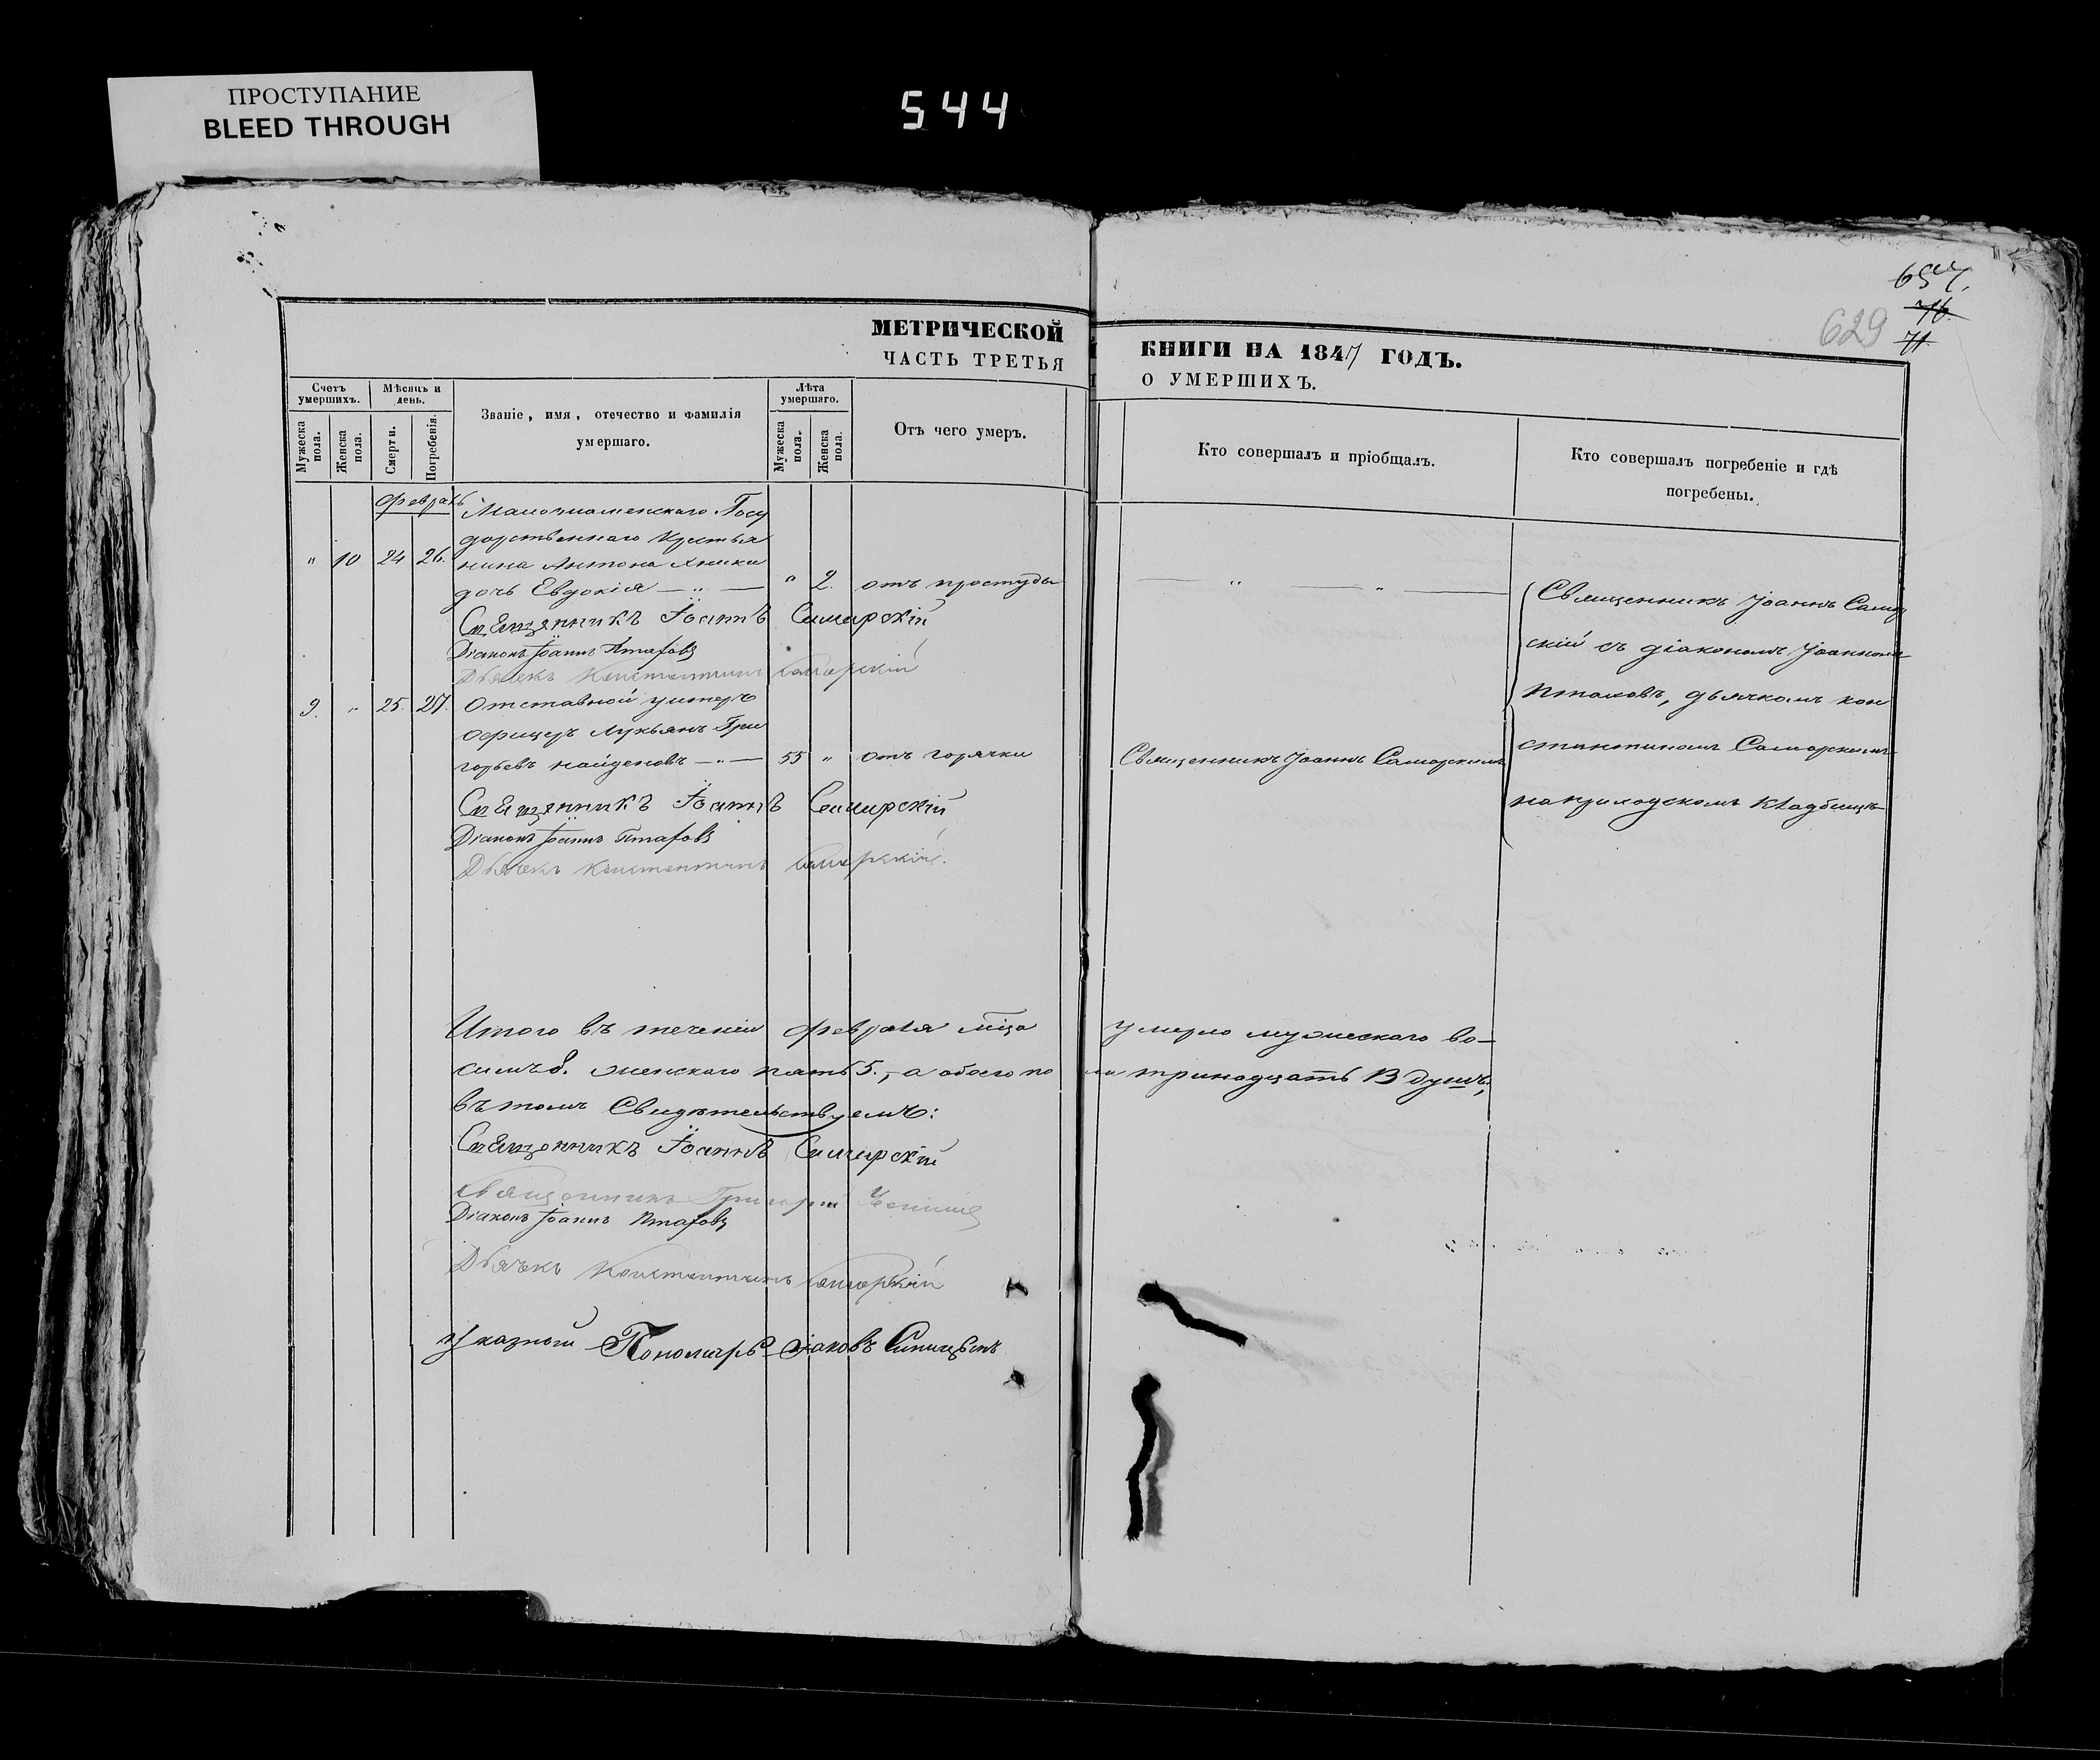 ПРОСТУПАНИЕ
BLEED THROUGH
544
657.
76.
71.
629
МЕТРИЧЕСКОЙ КНИГИ НА 1847 ГОДЪ.
ЧАСТЬ ТРЕТЬЯ О УМЕРШИХЪ.
Счетъ умершихъ.
Мѣсяцъ и день.
Званіе, имя, отечество и фамилія умершаго.
Лѣта умершаго.
Отъ чего умеръ.
Кто совершалъ и пріобщалъ.
Кто совершалъ погребеніе и гдѣ погребены.
Мужеска пола.
Женска пола.
Смерти.
Погребенія.
Мужеска пола.
Женска пола.
Февраль
Госу
дарственнаго Крестья
" 10 24 26. нина Антона
дочь Евдокія — " — " 2. отъ простуды — " — " —
Священникъ Іоаннъ Самарскій
Діаконъ Іоаннъ Птаховъ
Дьячекъ Константинъ Самарскій
Священникъ Іоаннъ Самар
скій съ діакономъ Іоанномъ
Птаховъ, дьячкомъ кон
стантиномъ Самарскимъ
на приходскомъ кладбищѣ
9. " 25. 27. Отставной унтеръ
офицеръ Лукьянъ Гри
горьевъ найденовъ — " — 55 " отъ горячки Священникъ Іоаннъ Самарскій
Священникъ Іоаннъ Самарскій
Діаконъ Іоаннъ Птаховъ
Дьячекъ Константинъ Самарскій.
Итого въ теченіи февраля мѣца умерло мужескаго во-
симъ 8. женскаго пять 5., а обоего пола тринадцать 13 душъ,
въ томъ Свидѣтельствуемъ:
Священникъ Іоаннъ Самарскій
Священникъ Григорій
Діаконъ Іоаннъ Птаховъ
Дьячекъ Константинъ Самарскій
Указный Пономарь Іаковъ Синицынъ